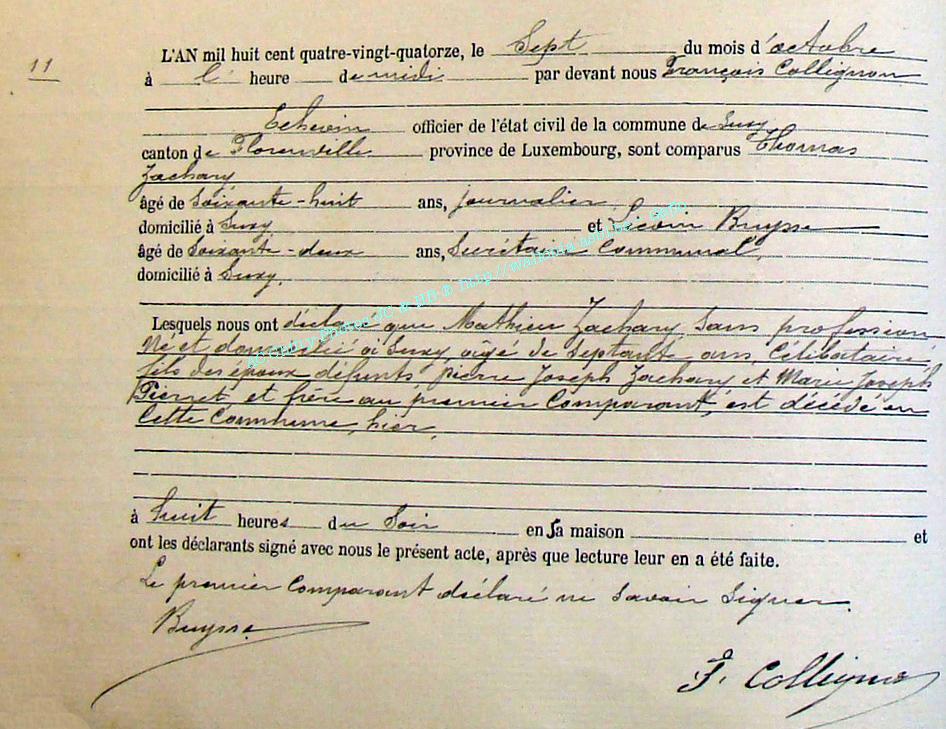 11
L'AN mil huit cent quatre-vingt-quatorze, le Sept du mois d'octobre
à l' heure de midi par devant nous François Collignon
Echevin officier de l'état civil de la commune de Suxy
canton de Florenville province de Luxembourg, sont comparus Thomas
Zachary
âgé de Soixante-huit ans, journalier,
domicilié à Suxy et Buysse
âgé de Soixante-deux ans, Secrétaire Communal,
domicilié à Suxy.
Lesquels nous ont déclaré que Mathieu Zachary Sans profession
Né et domicilié à Suxy, âgé de Septante ans, Célibataire,
fils des époux défunts pierre Joseph Zachary et Marie Joseph
Pierret et frère au premier Comparant, est décédé en
Cette Commune, hier,
à huit heures du Soir en sa maison et
ont les déclarants signé avec nous le présent acte, après que lecture leur en a été faite.
Le premier Comparant déclaré ne Savoir Signer.
Buysse
F. Collignon